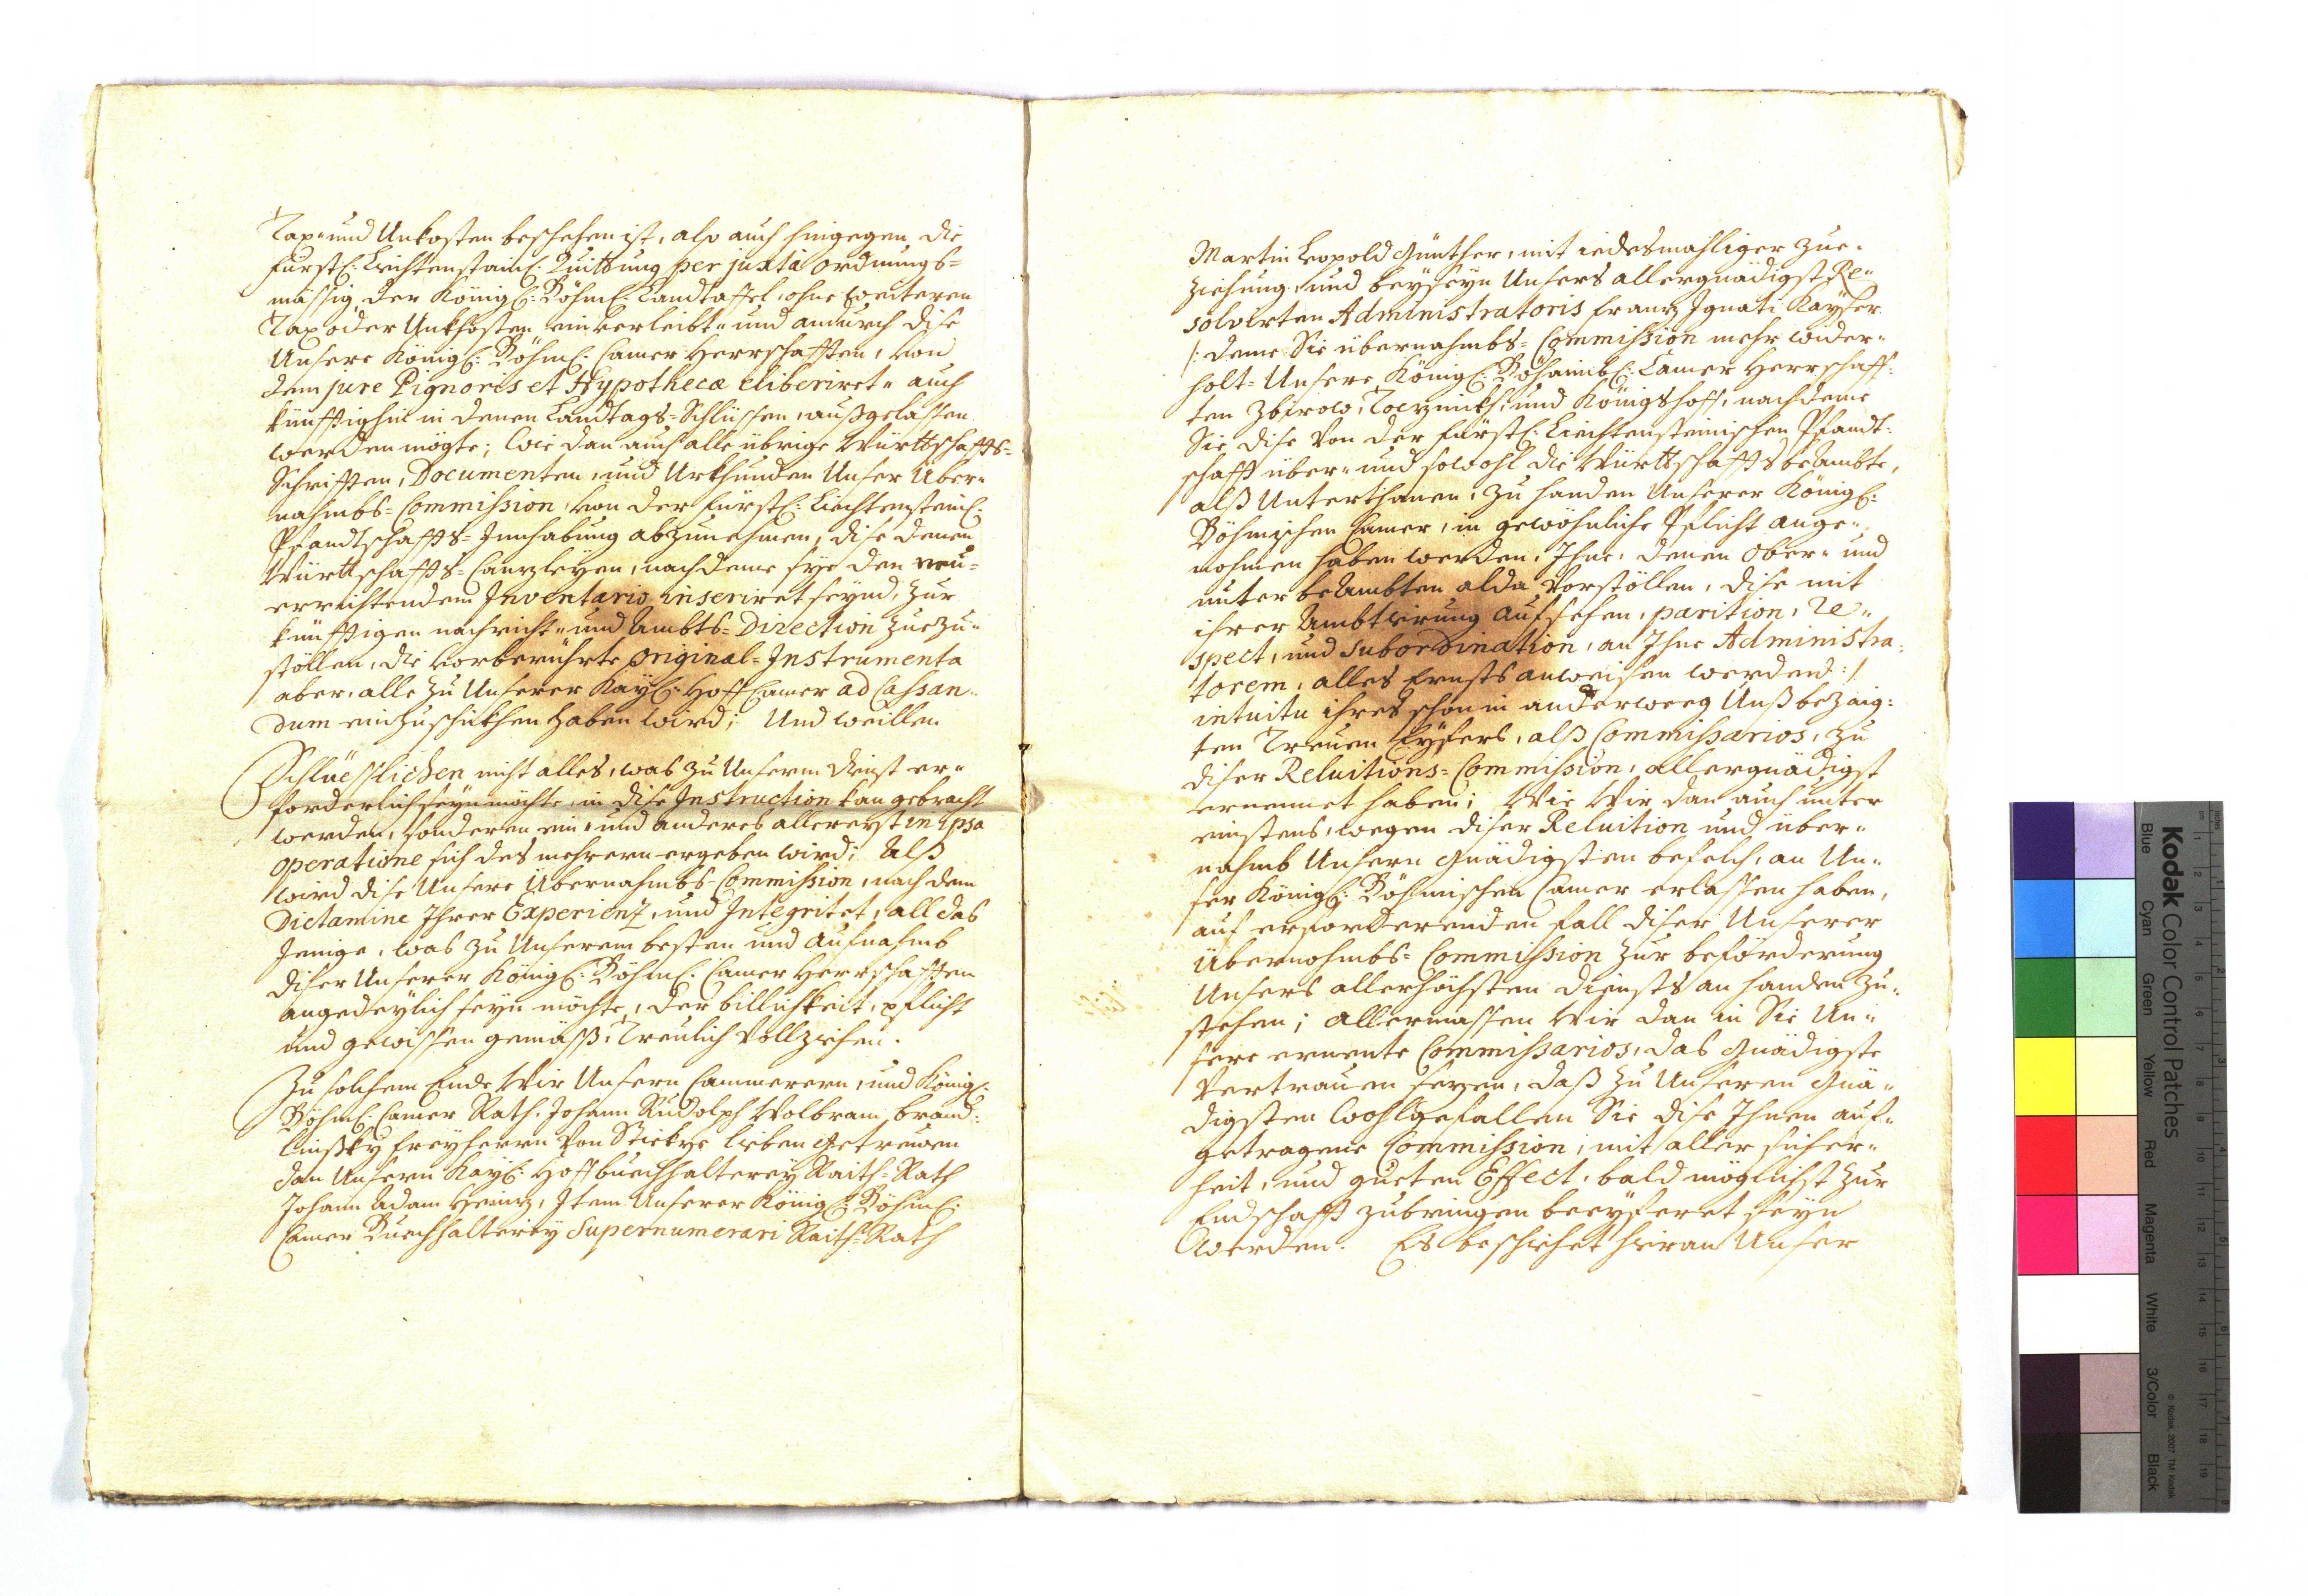 Tax- und Unkosten beschehen ist, also auch hingegen die
Fürstl: Liechtenstainl: Quittung per juxta ordnungs-
mässig der Königl: Böhml: Landtaffel, ohne weiteren
Tax oder Unkhosten einverleibt- und andurch dise
Unsere Königl: Böhml: Camer Herrschafften, von
dem jure Pignoris et Hypothecæ eliberiret- auch
künfftighin in denen Landtags-Schlüssen, außgelassen
werden mögte; wie dan auch alle übrige Württschaffts-
Schrifften, Documenten, und Urkhunden Unser Über-
nahmbs-Commission, von der Fürstl: Liechtensteinl:
Pfandtschaffts-Innhabung abzunehmen, dise denen
Württschaffts-Canzleyen, nachdeme sye den neu-
errichtendem Inventario inseriret seynd, zur
künfftigen nachricht- und Ambts-Direction zuezu-
stöllen, die vorberührte Original-Instrumenta
aber, alle zu Unserer Kayl: Hoff Camer ad Cassan-
dum einzuschickhen haben wird; Und weillen
Schlüesslichen nicht alles, was zu Unserm dienst er-
forderlich seyn möchte, in dise Instruction kan gebracht
werden, sonderen ein- und anderes allererst in ipsa
operatione sich des mehrern ergeben wird; Alß
wird dise Unsere Übernahmbs-Commission, nach dem
Dictamine Ihrer Experienz, und Integritet, all das
Jenige, was zu Unserem besten und aufnahmb
diser Unserer Königl: Böhml: Camer Herrschafften
angedeylich seyn möchte, der billichkeit, pflicht
und gewissen gemäß, Treulich vollziehen.
Zu solchem Ende Wir Unsern Cammerern, und Königl:
Böhml: Camer Rath, Johann Rudolph Wolbram, brand-
linßky Freyherrn von Stiekhe lieben getreuen
dan Unsern Kayl: Hoffbuechhalterey Raith-Rath
Johann Adam Heintz, Item Unserer Königl: Böhml:
Camer Buechhalterey Supernumerari Raith-Rath
Martin Leopold Günther, mit iedesmahliger zue-
ziehung, und beyseyn Unsers allergnädigst Re-
solvirten Administratoris Franz Ignati Kayser
/: deme Sie übernahmbs-Commission mehr wider-
holt- Unsere Königl: Böhaimbl: Camer Herrschaff-
ten Zbirow, Tocznickh, und Königshoff, nachdeme
Sie dise von der Fürstl: Liechtensteinischen Pfandt-
schafft über- und sowohl die Württschaffts beAmbte,
alß Unterthanen, zu handen Unserer Königl:
Böhmischen Camer, in gewöhnliche Pflicht ange-
nohmen haben werden, Ihne, denen Ober- und
unter beAmbten alda vorstöllen, dise mit
ihrer Ambtirung aufsehen, parition, re-
spect, und subordination, an Ihne Administra-
torem, alles Ernsts anweisen werdend :/
intuitu ihres schon in anderweeg Unß bezaig-
ten Treuen Eyfers, alß Commissarios, zu
diser Reluitions-Commission, allergnädigst
ernennet haben; Wie Wir dan auch unter
einstens, wegen diser Reluition und über-
nahmb Unsern gnädigsten befelch, an Un-
ser Königl: Böhmischen Camer erlassen haben,
auf erforderenden fall diser Unserer
Übernohmbs-Commission zur beförderung
Unsers allerhöchsten diensts an handen zu-
stehen; allermassen Wir dan in Sie Un-
sere ernente Commissarios, das gnädigste
Vertrauen sezen, daß zu Unseren gnä-
digsten Wohlgefallen Sie dise Ihnen auf-
getragene Commission, mit aller sicher-
heit, und gueten Effect, bald möglichst zur
Endschafft zubringen beeyferet seyn
werden. Es beschiehet hieran Unser
Kodak Color Control Patches
Blue Cyan Green Yellow Red Magenta White 3/Color Black
© Kodak, 2007 TM: Kodak